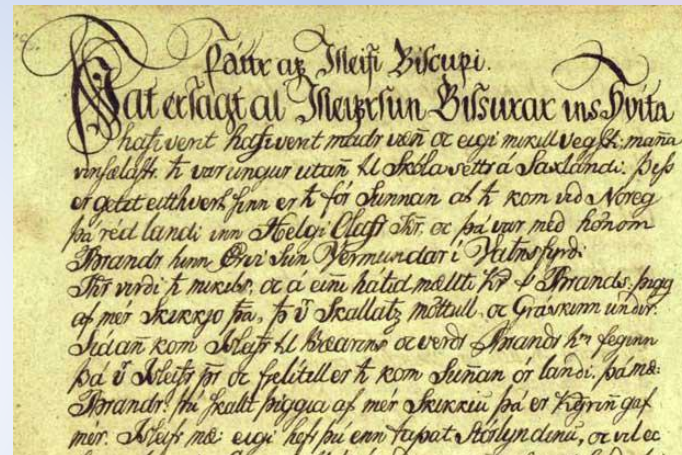 Þáttr af Isleifi Biscupi.
Þat er sagt at Isleifr sun Gissurar ins Hvíta
hafi vent hafi vent madr væñ oc eigi mikill vegstr. maña
vinsælastr. ħ var ungur utañ til Skóla settr á Saxlandi. Þess
er getit eitthvert sinn er ħ fór Sunnan at ħ kom vid Noreg
þá réd landi inn Helgi Olafr Kr. oc þá var med hönom
Brandr hinn Orvi Sun Vermundar i Vatnsfyrdi
Kr virdi ħ mikils, oc á eiñi hátid mællti Kr Brands. þigg
af mér Skikkjo þa, Skallatz möttull oc Gráskinn undir.
Sidañ kom Isleifr til Bæarins oc verdr Brandr feginn
þá Isleifr oc felitill er ħ kom Suñan ór landi. þá mæ:
Brandr: þú skallt þiggia af mér Skikkiu þá er Kgriñ gaf
mér. Isleifr mæ: eigi hefr þú enn tapat Stórlyndinu, oc vil ec